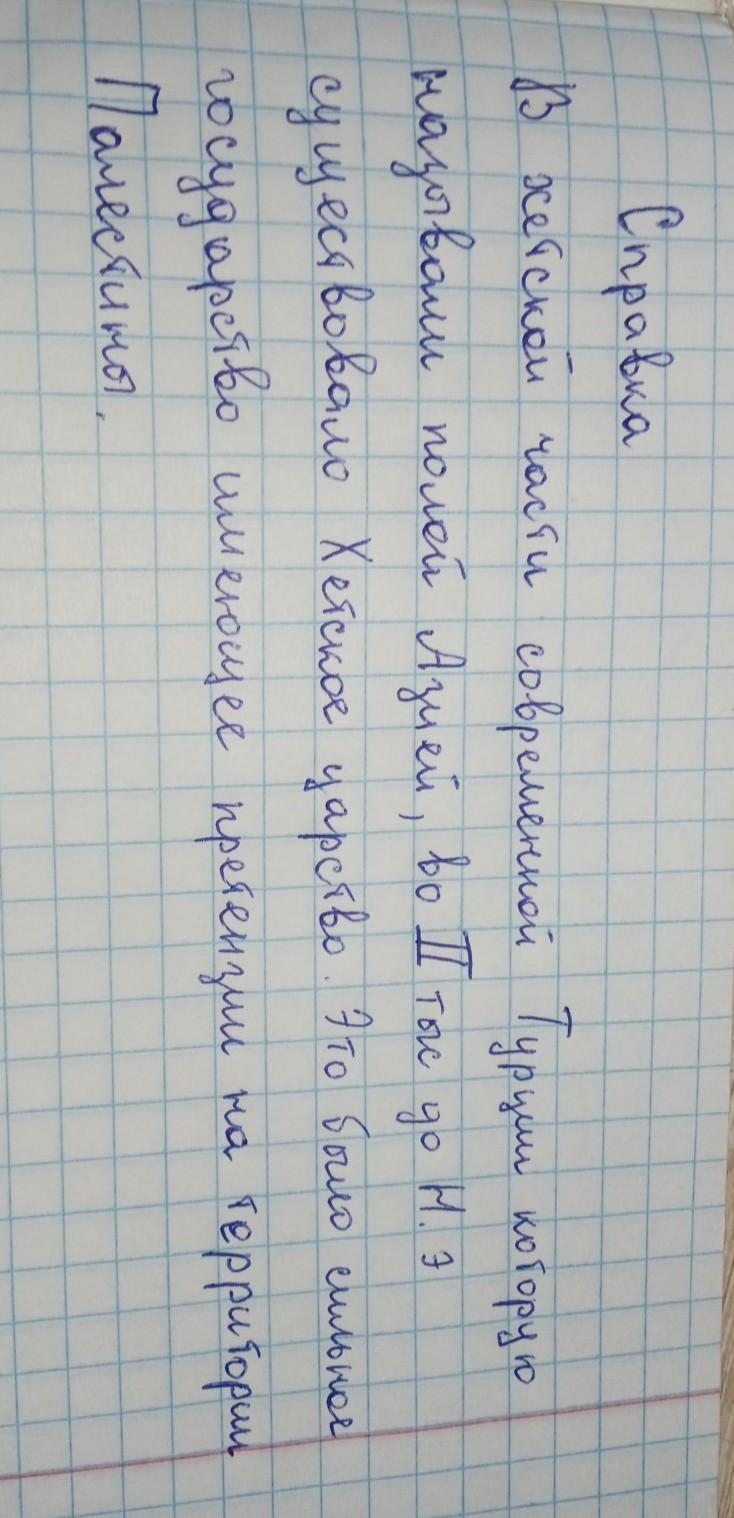 Справка
В хетской части современной Турции которую
называли полой Азией, во II тыс до Н. э
существовало Хетское царство. Это было сильное
государство имеющее претензии на территории
Палестины.